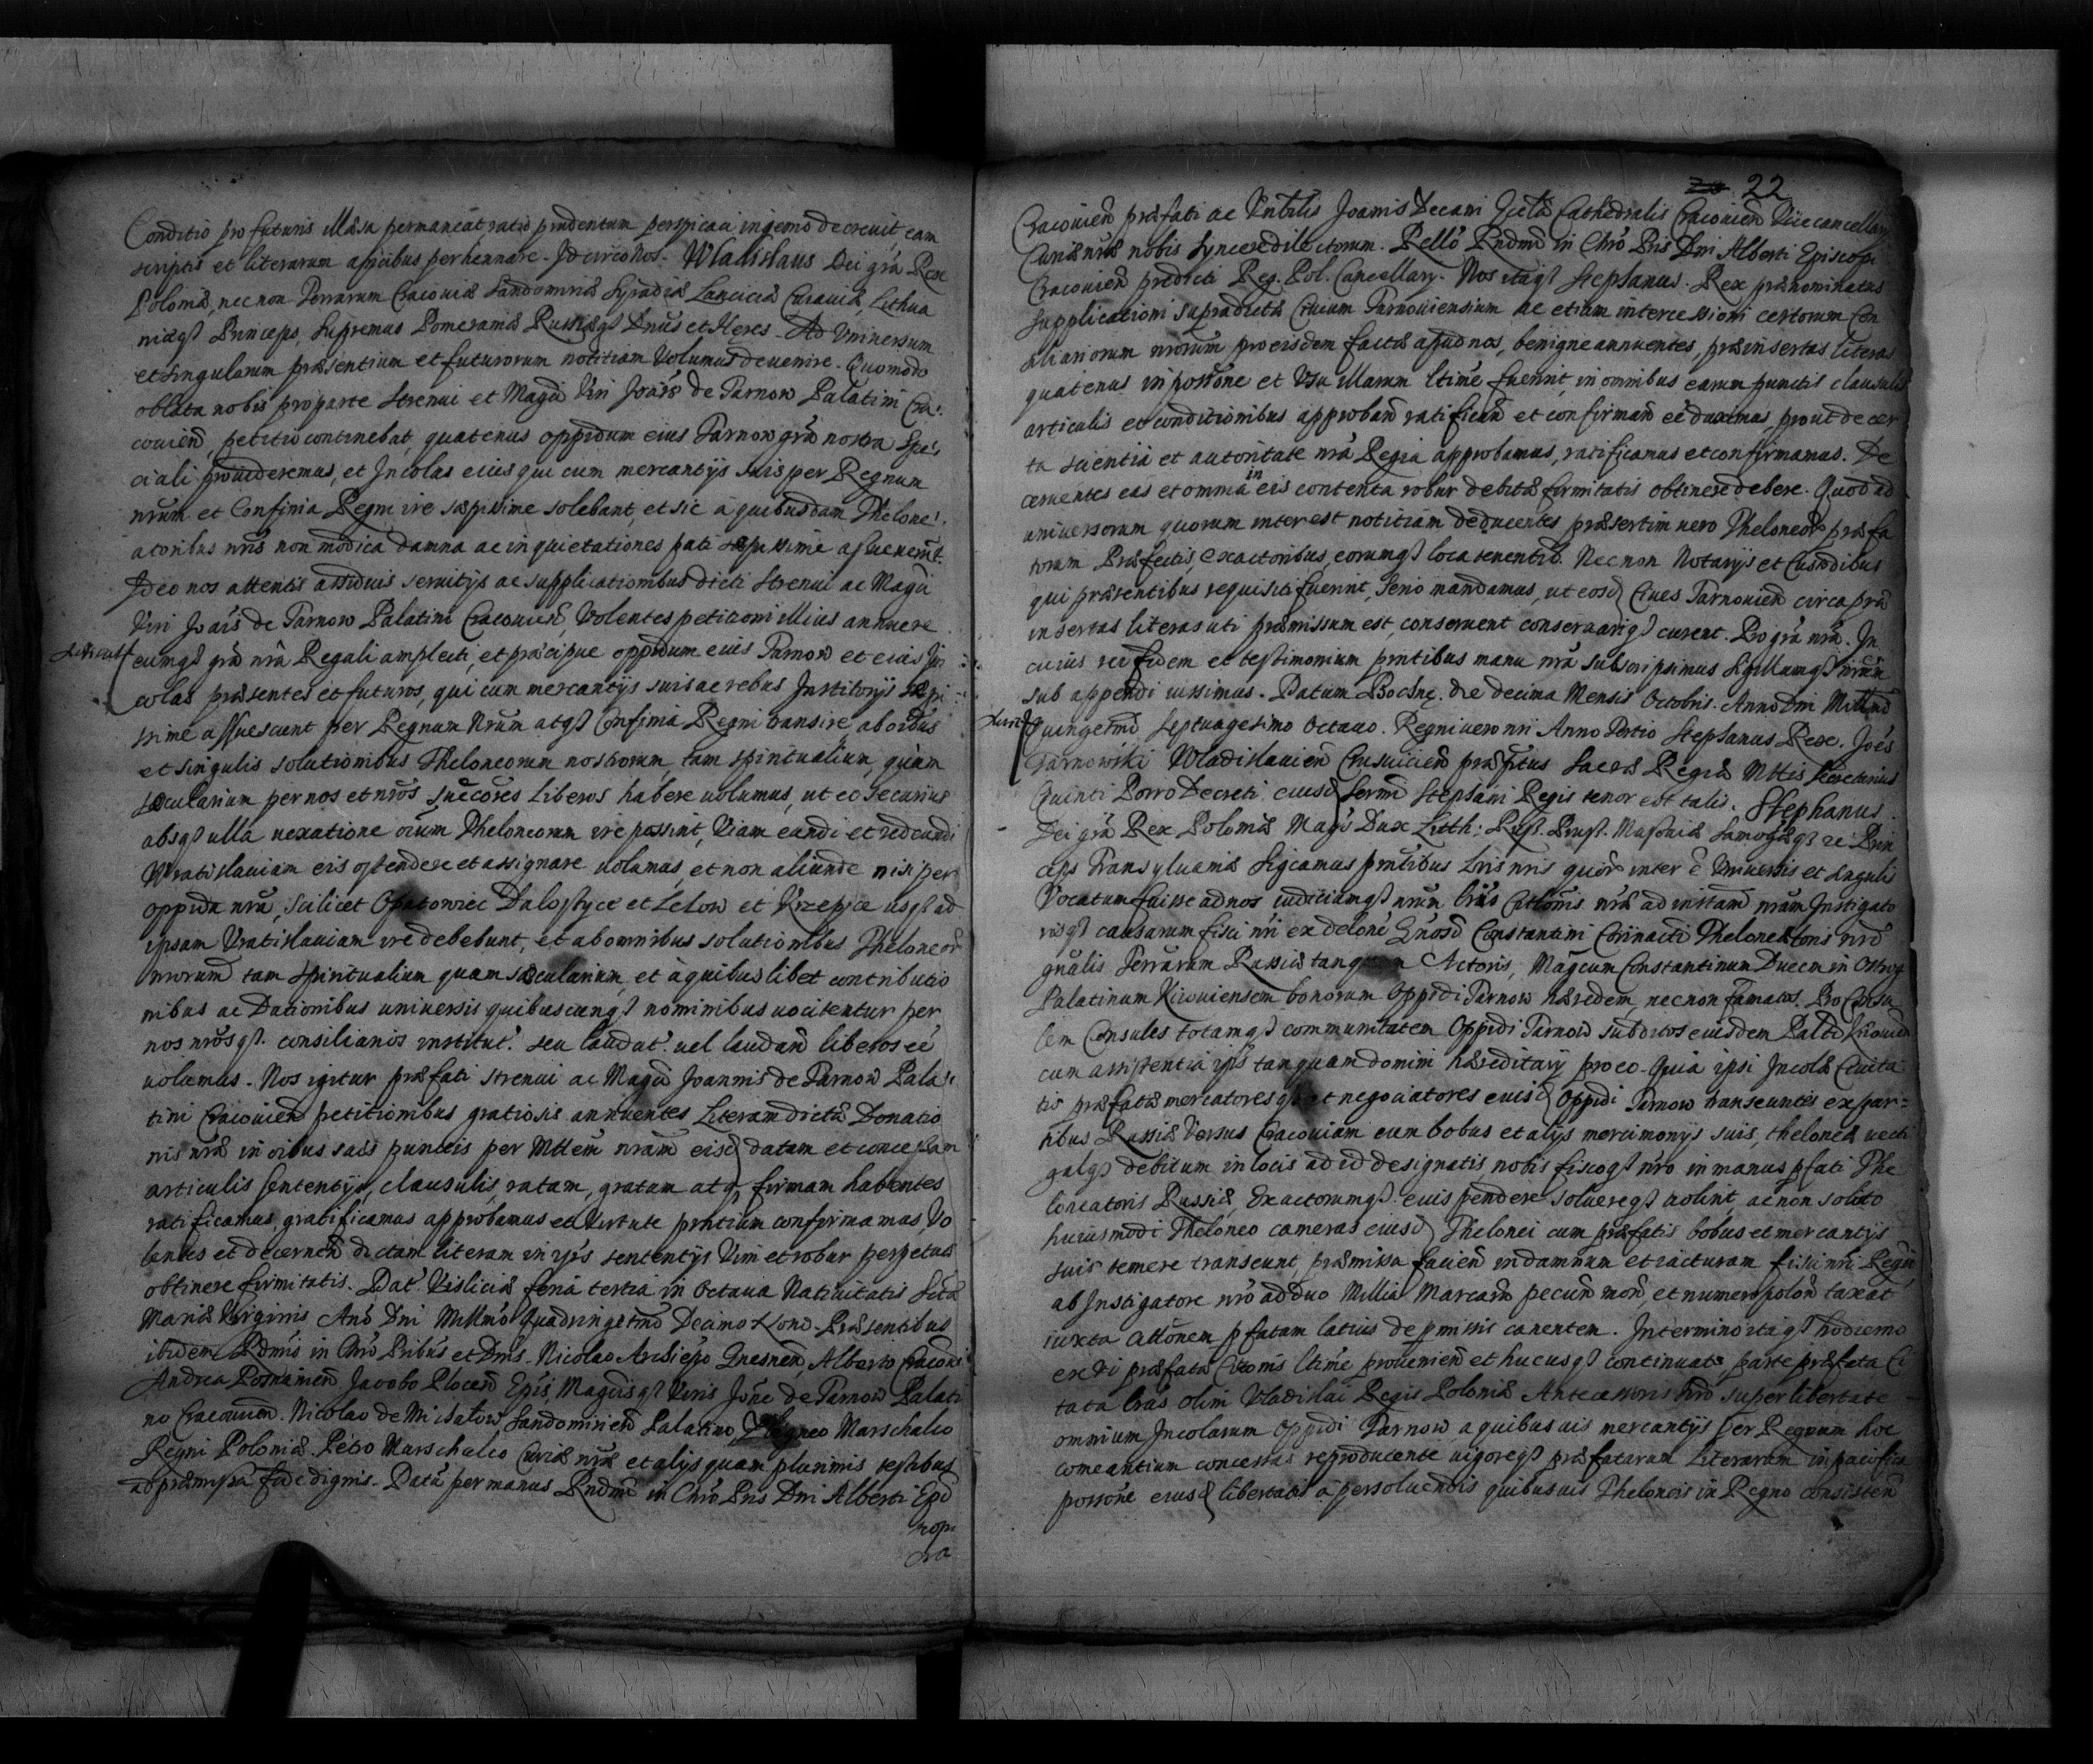 Conditio pro futuris illæsa permaneat, ratio prudentum perspicaci ingenio decreuit, eam
scriptis et literarum apicibus perhennare. Idcirco Nos. Wladislaus Dei grã Rex
Poloniæ, nec non Terrarum Cracouiæ Sandomiriæ Syradiæ Lanciciæ Cuiauiæ, Lithua
niæq3 Princeps, Supremus Pomeraniæ Russiæq3 Dnus et Hęres. Ad Vniuersum
et singulorum præsentium et futurorum notitiam Volumus deuenire. Quomodo
oblata nobis pro parte Strenui et Magci Viri Joãis de Tarnow Palatini Cra:
couien̄, petitio continebat, quatenus oppidum eius Tarnow grã nostra Spe:
ciali prouideremus, et Incolas eius qui cum mercantijs suis per Regnum
nrum et Confinia Regni ire sæpissime solebant, et sic a quibusdam Thelone:
atoribus nris non modica damna ac inquietationes pati sæpissime assueuerũt.
Ideo nos attentis assiduis seruitijs ac supplicationibus dicti Strenui ac Magci
Viri Joãis de Tarnow Palatini Cracouien̄, Volentes petitioni illius annuere
eumq3 grã nrã Regali amplecti, et præcipue oppidum eius Tarnow et eius In
colas præsentes et futuros, qui cum mercantijs suis ac rebus Institorijs sæpi
ssime assuescunt per Regnum Nrum atq3 Confinia Regni transire, ab oibus
et singulis solutionibus Theloneorum nostrorum, tam spiritualium, quàm
sæcularium per nos et nros succores Liberos habere uolumus, ut eo securius
absq3 ulla uexatione oium Theloneorum ire possint, Viam eundi et redeundi
Wratislauiam eis ostendere et assignare uolumus, et non aliunde nisi per
oppida nrã, scilicet Opatowiec Dalostyce et Lelow et Krzepice usq3 ad
ipsam Vratislauiam ire debebunt, et ab omnibus solutionibus Theloneor
nrorum tam Spiritualium quam sæcularium, et à quibuslibet contributio
nibus ac Dationibus uniuersis quibuscunq3 nominibus uocitentur per
nos nrosq3 consiliarios institut. seu laudat. uel laudand̄ liberos eẽ
uolumus. Nos igitur præfati strenui ac Magci Joannis de Tarnow Pala:
tini Cracouien̄ petitionibus gratiosis annuentes Literam dictæ Donatio
nis nræ in oibus suis punctis per Mttem nram eisd datam et concessam
articulis sententijs, clausulis, ratam, gratam atq3 firmam habentes
ratificamus, gratificamus approbamus et Virtute pntium confirmamus, Vo
lentes et decernen̄ dictam literam in ijs sententijs Vim et robur perpetuæ
obtinere firmitatis. Dat. Visliciæ feria tertia in Octaua Natiuitatis Sctæ
Mariæ Virginis Anõ Dni Millmo Quadringetmo Decimo Nono. Præsentibus
ibidem Rdmis in Chro Pribus et Dnis. Nicolao Archiepo Gnesnen̄, Alberto Cracoui:
Andrea Posnanien̄ Jacobo Plocen̄ Epis, Magcisq3 Viris Joñe de Tarnow Palati
no Cracouien̄. Nicolao de Michałow Sandomirien̄ Palatino Zbigneo Marschalco
Regni Poloniæ. Petro Marschalco Curiæ nræ et alijs quam plurimis testibus
ad præmissa fide dignis. Datũ per manus Rndmi in Chro Pris Dni Alberti Epi
scopi
Cra
22
Cracouien̄ præfati ac Vnblis Joannis Decani Ecclæ Cathedralis Cracouien̄ Vicecancellarij
Curiæ nræ nobis syncere dilectorum. Rello Rndmi in Chro Pris Dni Alberti Episcopi
Cracouien̄ predicti Reg. Pol. Cancellarij. Nos itaq3 Stephanus. Rex prænominatus
supplicationi supradictæ Ciuium Tarnouiensium ac etiam intercessioni certorum Con
siliariorum nrorum pro eisdem factæ apud nos, benigne annuentes, præinsertas literas
quatenus in possone et Vsu illarum ltime fuerint, in omnibus earum punctis clausulis
articulis et conditionibus approband̄ ratificand̄ et confirmand̄ eẽ duximus, prout de cer
ta scientia et autoritate nrã Regia approbamus, ratificamus et confirmamus. De
cernentes eas et omnia in eis contenta robur debitæ firmitatis obtinere debere. Quod ad
uniuersorum quorum interest notitiam deducentes præsertim uero Theloneor præfa
torum Præfectis, exactoribus, eorumq3 loca tenentib. Nec non Notarijs et Custodibus
qui præsentibus requisiti fuerint, serio mandamus, ut eosd Ciues Tarnouien̄ circa præ
insertas literas uti præmissum est, conseruent conseruariq3 curent. Pro grã nrã. In
cuius rei fidem et testimonium pntibus manu nrã subscripsimus Sigillumq3 nrum
sub appendi iussimus. Datum Bochnę die decima Mensis Octobris. Anno Dni Millmo
Quingetmo Septuagesimo Octauo. Regni uero nri Anno Tertio Stephanus Rex. Joẽs
Tarnowski Wladislauien̄ Crusuicien̄ præpitus Sacræ Regiæ Mttis Secretarius
Quinti Porro Decreti eiusd Sermi Stephani Regis tenor est talis. Stephanus
Dei grã Rex Poloniæ Mag. Dux Litth: Russ. Pruss. Massouiæ Samogitæq3 ac Prin
ceps Transyluaniæ Significamus pntibus lris nris quor inter ẽ Vniuersis et singulis
Vocatum fuisse ad nos iudiciumq3 nrum lris Cittonis nræ ad instañ nrum Instigato
risq3 causarum fisci nri ex delone Gnosd Constantini Corinacti Theloneatoris nri
gnalis Terrarum Russiæ tanquam Actoris, Magcum Constantinum Ducem in Ostrog
Palatinum Kiouiensem bonorum Oppidi Tarnow hæredem, nec non famatos. Pro Consu
lem Consules totamq3 communitatem Oppidi Tarnow subditos eiusdem Palti Kiouien̄
cum assistentia ipis tanquam domini hæreditarij pro eo. Quia ipsi Incolæ Ciuita
tis præfatæ mercatoresq3 et negociatores eiusd Oppidi Tarnow transeuntes ex par=
tibus Russiæ Versus Cracouiam cum bobus et alijs mercimonijs suis, thelonea uecti
galq3 debitum in locis ad id designatis nobis fiscoq3 nro in manus pfati The
loneatoris Russiæ, Exactorumq3 eius pendere soluereq3 nolint, ac non soluto
huiusmodi Theloneo cameras eiusd Thelonei cum præfatis bobus et mercantijs
suis temere transeunt, præmissa facien̄ in damnum et iacturam fisci nri Regij
ab Instigatore nro ad duo Millia Marcarum pecun mon, et numeri polon taxat
iuxta Attonem pfatam latius de pmissis canentem. In termino itaq3 hodierno
ex di præfatæ Cittonis ltime prouenien̄ et hucusq3 continuato parte præfata Ci
tata lras olim Vladislai Regis Poloniæ Antecessoris nri super libertate
omnium Incolarum Oppidi Tarnow a quibusuis mercantijs per Regnum hoc
comeantium concessas reproducente uigoreq3 præfatarum Literarum in pacifica
possone eiusd libertatis a persoluendis quibusuis Theloneis in Regno consisten̄